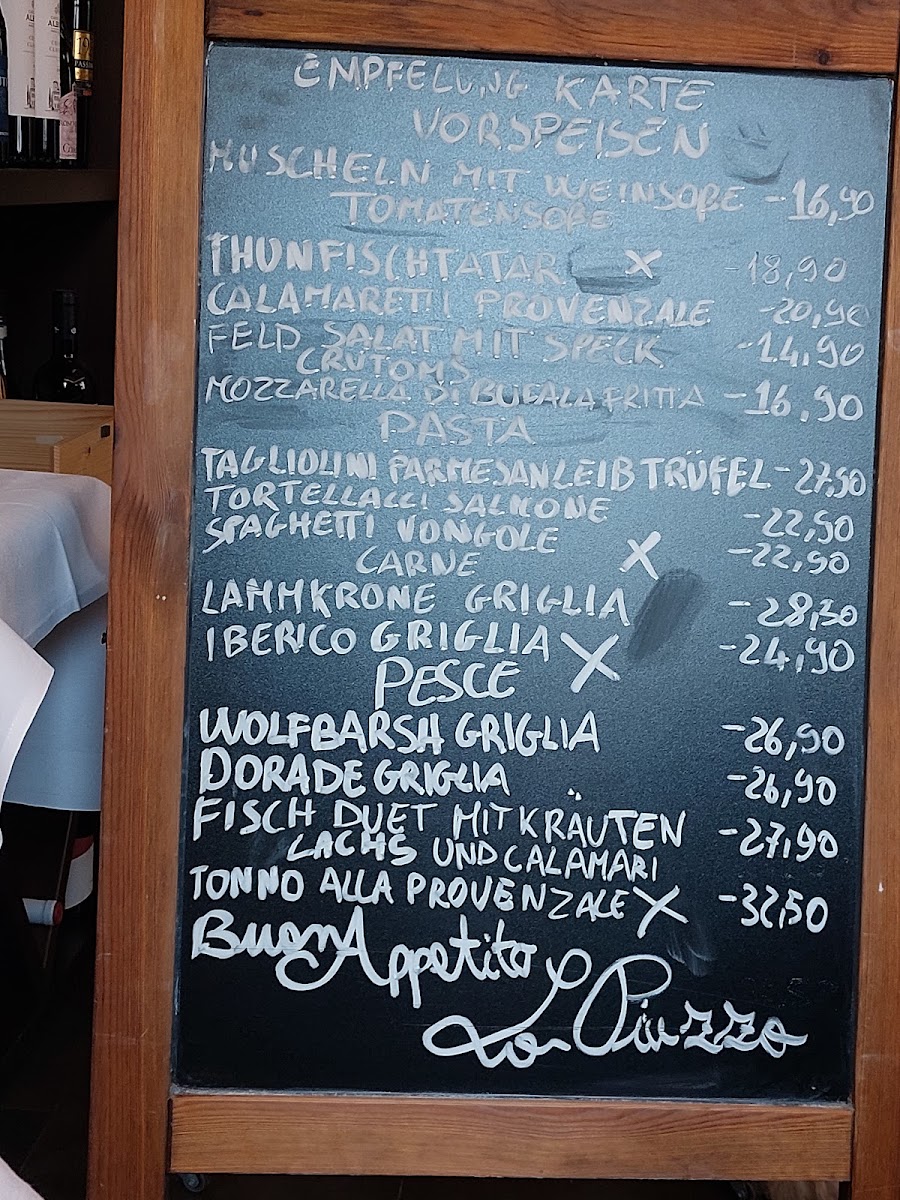 EMPFELUNG KARTE
VORSPEISEN
MUSCHELN MIT WEINSOßE -16,90
TOMATENSOßE
THUNFISCHTATAR X -18,90
CALAMARETTI PROVENZALE -20,90
FELD SALAT MIT SPECK -14,90
CRUTOMS
MOZZARELLA DI BUFALA FRITTA -16,90
PASTA
TAGLIOLINI PARMESANLEIB TRÜFEL -27,90
TORTELLACCI SALMONE -22,90
SPAGHETTI VONGOLE X -22,90
CARNE
LAMMKRONE GRIGLIA -28,50
IBERICO GRIGLIA X -24,90
PESCE
WOLFBARSH GRIGLIA -26,90
DORADE GRIGLIA -26,90
FISCH DUET MIT KRÄUTEN -27,90
LACHS UND CALAMARI
TONNO ALLA PROVENZALE X -32,50
Buon Appetito
La Piazza